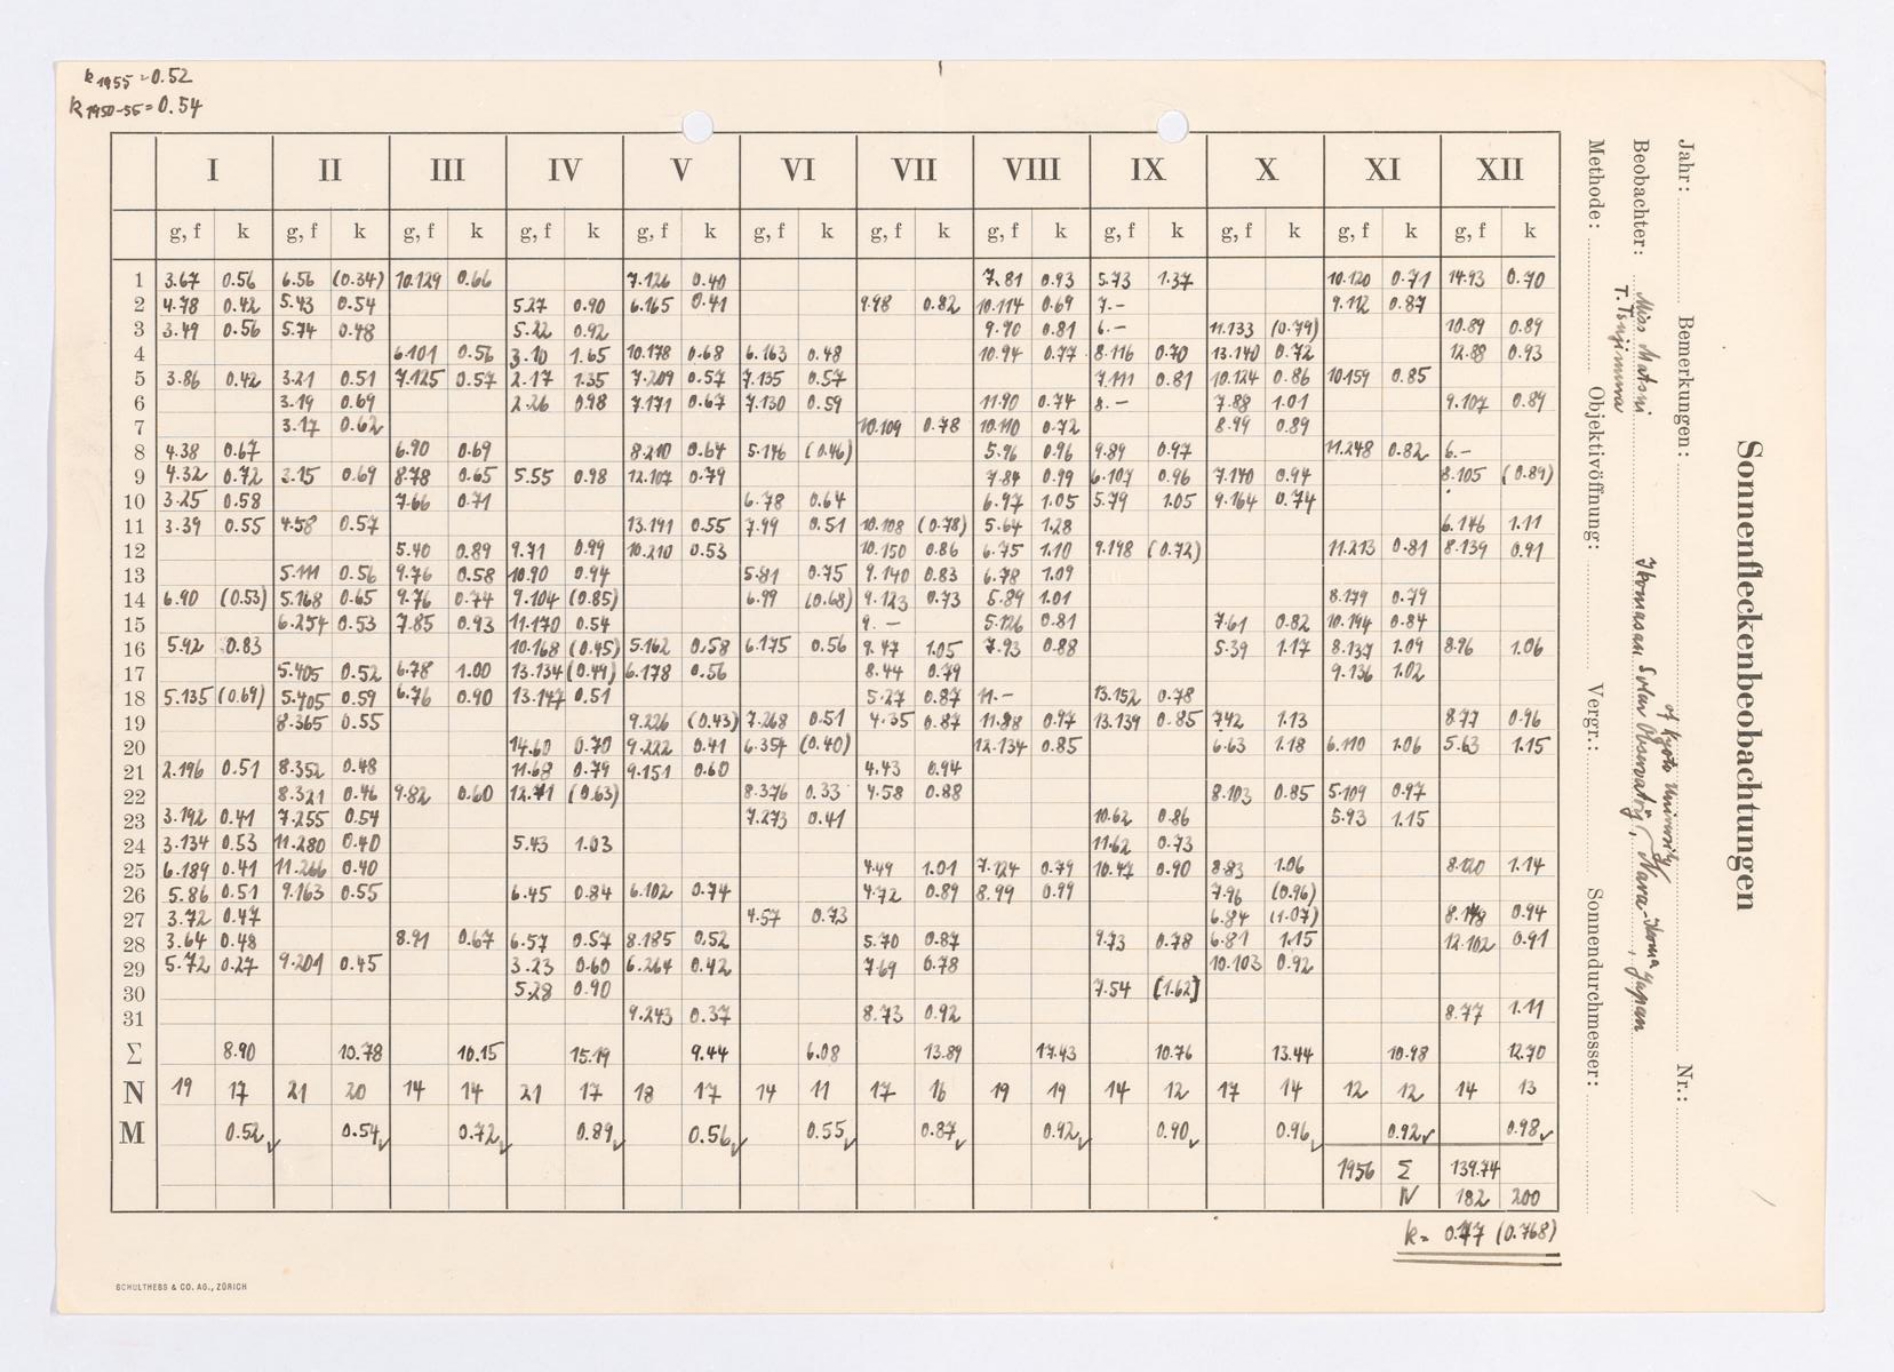 k 1955 = 0.52
k 1950-55 = 0.54
Sonnenfleckenbeobachtungen
Jahr: Bemerkungen: Nr.:
Beobachter: Miss Matsui Ikomasan Solar Observatory, Nara, Japan
T. Tsujimura of Kyoto University
Methode: Objektivöffnung: Vergr.: Sonnendurchmesser:
I II III IV V VI VII VIII IX X XI XII
g, f k g, f k g, f k g, f k g, f k g, f k g, f k g, f k g, f k g, f k g, f k g, f k
1 3.67 0.56 6.56 (0.34) 10.129 0.66 7.126 0.40 7.81 0.93 5.73 1.37 10.120 0.71 14.93 0.70
2 4.78 0.42 5.43 0.54 5.27 0.90 6.165 0.41 9.98 0.82 10.114 0.69 7.- 9.112 0.87
3 3.49 0.56 5.74 0.48 5.22 0.92 9.90 0.81 6.- 11.133 (0.79) 10.89 0.89
4 6.101 0.56 3.10 1.65 10.178 0.68 6.163 0.48 10.94 0.77 8.116 0.70 13.140 0.72 12.88 0.93
5 3.86 0.42 3.21 0.51 7.125 0.57 2.17 1.35 7.209 0.57 7.135 0.57 7.111 0.81 10.124 0.86 10.159 0.85
6 3.19 0.69 2.26 0.98 7.171 0.67 7.130 0.59 11.90 0.74 8.- 7.88 1.01 9.107 0.89
7 3.17 0.62 10.109 0.78 10.110 0.72 8.99 0.89
8 4.38 0.67 6.90 0.69 8.210 0.64 5.146 (0.46) 5.96 0.96 9.89 0.97 11.248 0.82 6.-
9 4.32 0.72 3.15 0.69 8.78 0.65 5.55 0.98 12.107 0.79 7.84 0.99 6.107 0.96 7.140 0.94 8.105 (0.89)
10 3.25 0.58 7.66 0.71 6.78 0.64 6.97 1.05 5.79 1.05 9.164 0.74
11 3.39 0.55 4.58 0.57 13.191 0.55 7.99 0.51 10.108 (0.78) 5.64 1.28 6.146 1.11
12 5.40 0.89 9.71 0.99 10.210 0.53 10.150 0.86 6.75 1.10 9.198 (0.72) 11.213 0.81 8.139 0.91
13 5.111 0.56 9.76 0.58 10.90 0.94 5.81 0.75 9.140 0.83 6.78 1.09
14 6.90 (0.53) 5.168 0.65 9.76 0.74 9.104 (0.85) 6.99 (0.68) 9.123 0.73 5.89 1.01 8.179 0.79
15 6.254 0.53 7.85 0.93 11.170 0.54 9.- 5.126 0.81 7.61 0.82 10.194 0.84
16 5.92 0.83 10.168 (0.45) 5.162 0.58 6.175 0.56 9.47 1.05 7.93 0.88 5.39 1.17 8.137 1.09 8.96 1.06
17 5.405 0.52 6.78 1.00 13.134 (0.49) 6.178 0.56 8.44 0.79 9.136 1.02
18 5.135 (0.69) 5.405 0.59 6.76 0.90 13.147 0.51 5.27 0.87 11.- 13.152 0.78
19 8.365 0.55 9.226 (0.43) 7.268 0.51 4.35 0.87 11.88 0.97 13.139 0.85 7.42 1.13 8.77 0.96
20 14.60 0.70 9.222 0.41 6.354 (0.40) 12.134 0.85 6.63 1.18 6.110 1.06 5.63 1.15
21 2.196 0.51 8.352 0.48 11.68 0.79 9.151 0.60 4.43 0.94
22 8.321 0.46 9.82 0.60 12.71 (0.63) 8.376 0.33 4.58 0.88 8.103 0.85 5.109 0.97
23 3.192 0.41 7.255 0.54 7.273 0.41 10.62 0.86 5.93 1.15
24 3.134 0.53 11.280 0.40 5.43 1.03 11.62 0.73
25 6.189 0.41 11.266 0.40 4.49 1.01 7.124 0.79 10.47 0.90 8.83 1.06 8.120 1.14
26 5.86 0.51 9.163 0.55 6.45 0.84 6.102 0.74 4.72 0.89 8.99 0.99 7.96 (0.96)
27 3.72 0.47 4.57 0.73 6.84 (1.07) 8.148 0.94
28 3.64 0.48 8.91 0.67 6.57 0.57 8.185 0.52 5.70 0.87 9.73 0.78 6.81 1.15 12.102 0.91
29 5.72 0.27 9.201 0.45 3.23 0.60 6.264 0.42 7.69 0.78 10.103 0.92
30 5.28 0.90 7.54 [1.62]
31 9.243 0.37 8.73 0.92 8.77 1.11
Σ 8.90 10.78 10.15 15.19 9.44 6.08 13.89 17.43 10.76 13.44 10.98 12.70
N 19 17 21 20 14 14 21 17 18 17 14 11 17 16 19 19 14 12 17 14 12 12 14 13
M 0.52 0.54 0.72 0.89 0.56 0.55 0.87 0.92 0.90 0.96 0.92 0.98
1956 Σ 139.74
N 182 200
k = 0.77 (0.768)
SCHULTHESS & CO. AG., ZÜRICH